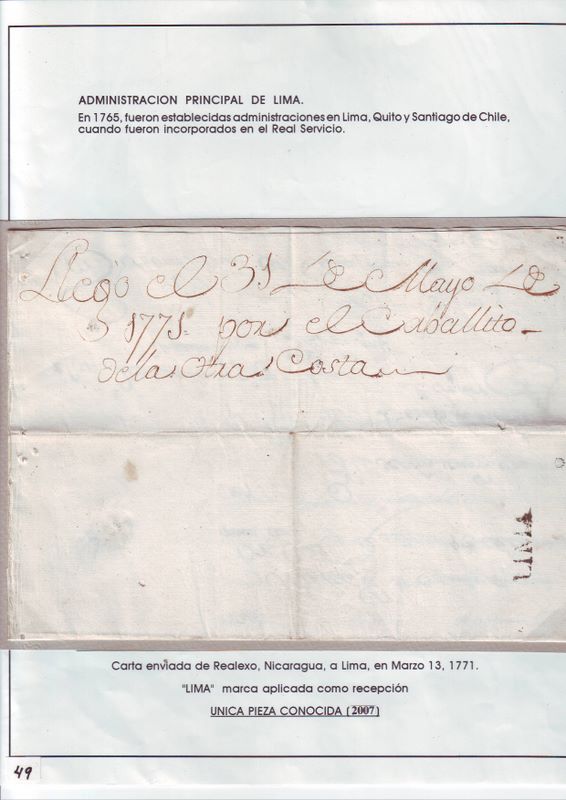 ADMINISTRACION PRINCIPAL DE LIMA.
En 1765, fueron establecidas administraciones en Lima, Quito y Santiago de Chile,
cuando fueron incorporados en el Real Servicio.
Llego el 31 de Mayo de
1771 por el Caballito
de la Otra Costa
LIMA
Carta enviada de Realexo, Nicaragua, a Lima, en Marzo 13, 1771.
"LIMA" marca aplicada como recepción
UNICA PIEZA CONOCIDA (2007)
49